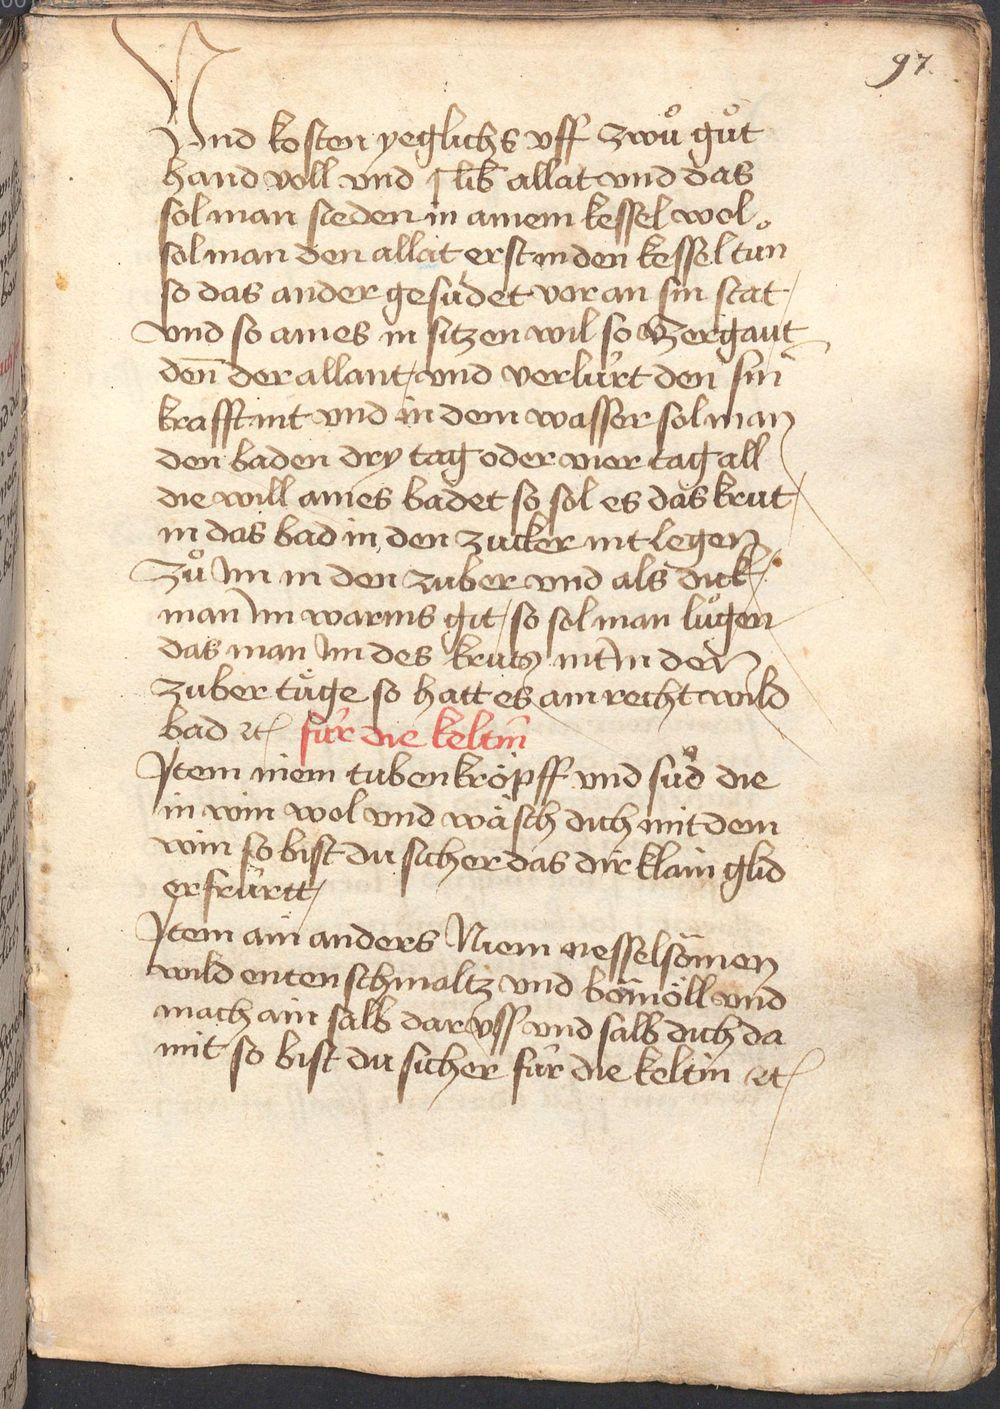 97.
Vnd kosten yeglichs vff zwuͦ guͦt
hand voll vnd j lib allat vnd das
sol man sieden in ainem kessel wol
sol man den allat erst in den kessel tuͦn
so das ander gesüdet vor an sin stat
vnd so aines in sitzen wil so zergaut
den̄ der allant / vnd verlürt den sin
krafft nit vnd in dem wasser sol man
den baden dry tag oder vier tag all
die will aines badet so sol es das krut /
in das bad in den zucker nit legen
zuͦ Im in den zuber vnd als dick /
man Im warms git / so sol man luͦgen
das man Im des krutz nit In dem
zuber täge so hatt es ain recht wild
bad ⁊c für die keltin
Item niem tuben kröpff vnd süd die
in win wol vnd wäsch dich mit dem
win so bist du sicher das dir klain glid
erfrürtt /
Item ain anders Niem nesselsömen
wild enten schmaltz vnd bömöll vnd
mach ain salb dar vss vnd salb dich da
mit so bist du sicher für die keltin ⁊c